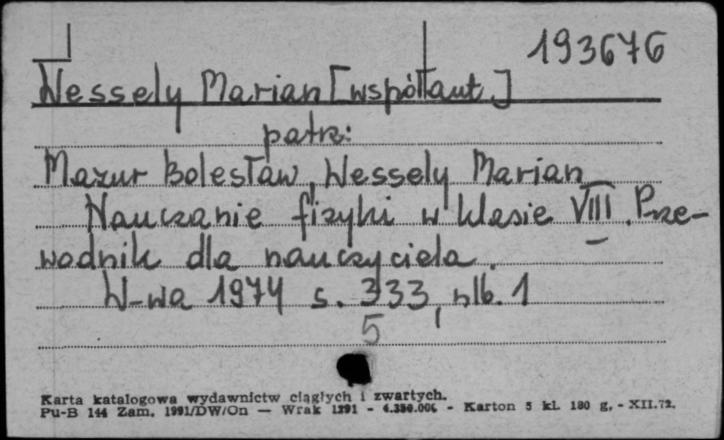 193676
Wessely Marian [współaut.]
patrz:
Mazur Bolesław, Wessely Marian
Nauczanie fizyki w klasie VIII. Prze-
wodnik dla nauczyciela.
W-wa 1974 s. 333, nlb. 1
5
Karta katalogowa wydawnictw ciągłych i zwartych.
Pu-B 144 Zam. 1991/DW/On — Wrak 1291 - 4.350.000 - Karton 5 kl. 180 g. - XII.72.